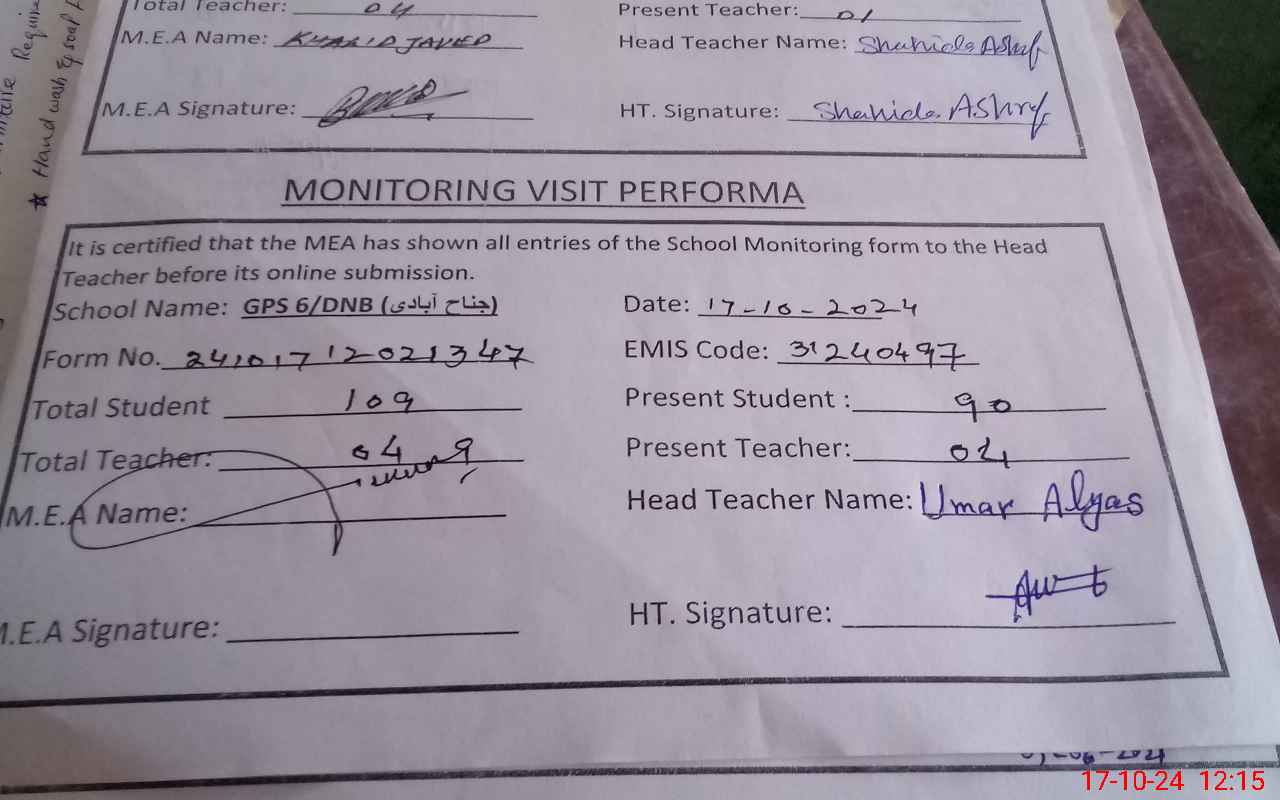 Total Teacher: 04 Present Teacher: 01
M.E.A Name: KHALID JAVED Head Teacher Name: Shahida Ashrf
M.E.A Signature: HT. Signature: Shahida Ashrf
MONITORING VISIT PERFORMA
It is certified that the MEA has shown all entries of the School Monitoring form to the Head
Teacher before its online submission.
School Name: GPS 6/DNB (جناح آبادی) Date: 17-10-2024
Form No. 24101712021347 EMIS Code: 31240497
Total Student 109 Present Student : 90
Total Teacher: 04 Present Teacher: 04
M.E.A Name: Head Teacher Name: Umar Alyas
M.E.A Signature: HT. Signature:
★ Hand wash & soap
17-10-24 12:15